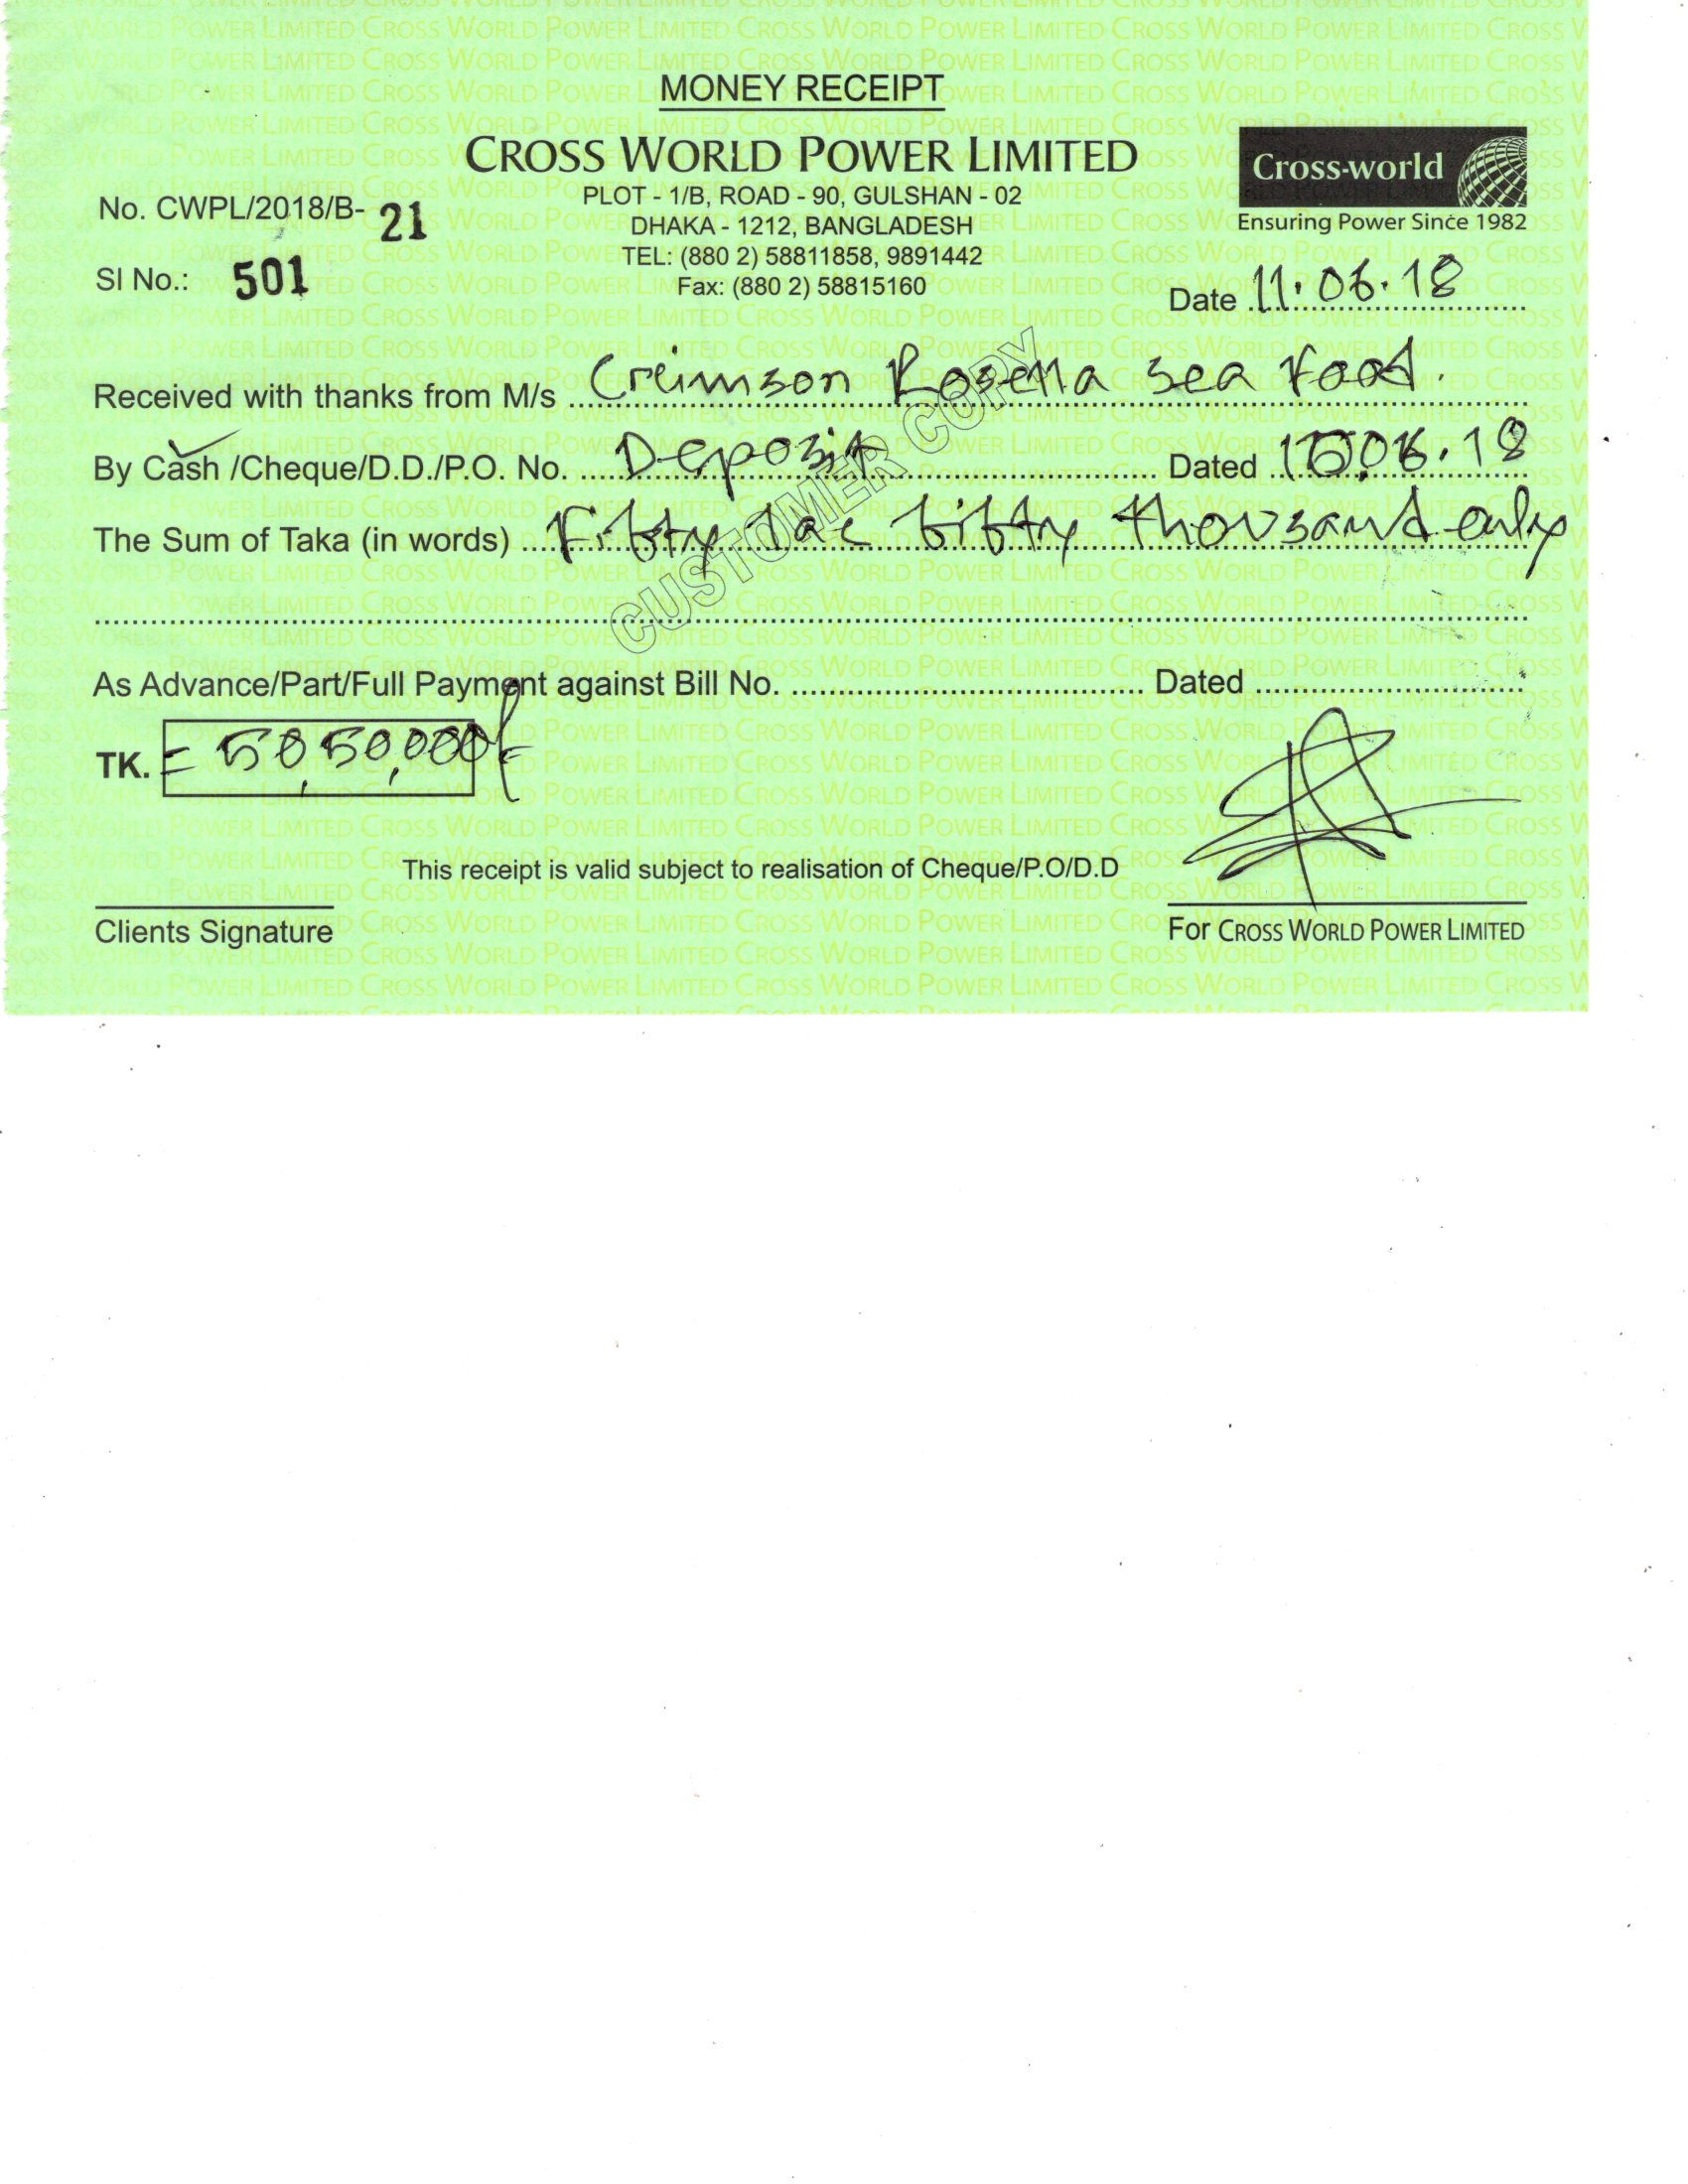 MONEY RECEIPT
CROSS WORLD POWER LIMITED
PLOT - 1/B, ROAD - 90, GULSHAN - 02
DHAKA - 1212, BANGLADESH
TEL: (880 2) 58811858, 9891442
Fax: (880 2) 58815160
Cross-world
Ensuring Power Since 1982
No. CWPL/2018/B- 21
Sl No.: 501
Date 11.06.18
Received with thanks from M/s Creimson Rosella sea Food.
By Cash /Cheque/D.D./P.O. No. Deposit Dated 06.18
The Sum of Taka (in words) Fifty lac fifty thousand only
CUSTOMER COPY
As Advance/Part/Full Payment against Bill No. Dated
TK. = 50,50,000/=
This receipt is valid subject to realisation of Cheque/P.O/D.D
Clients Signature
For CROSS WORLD POWER LIMITED